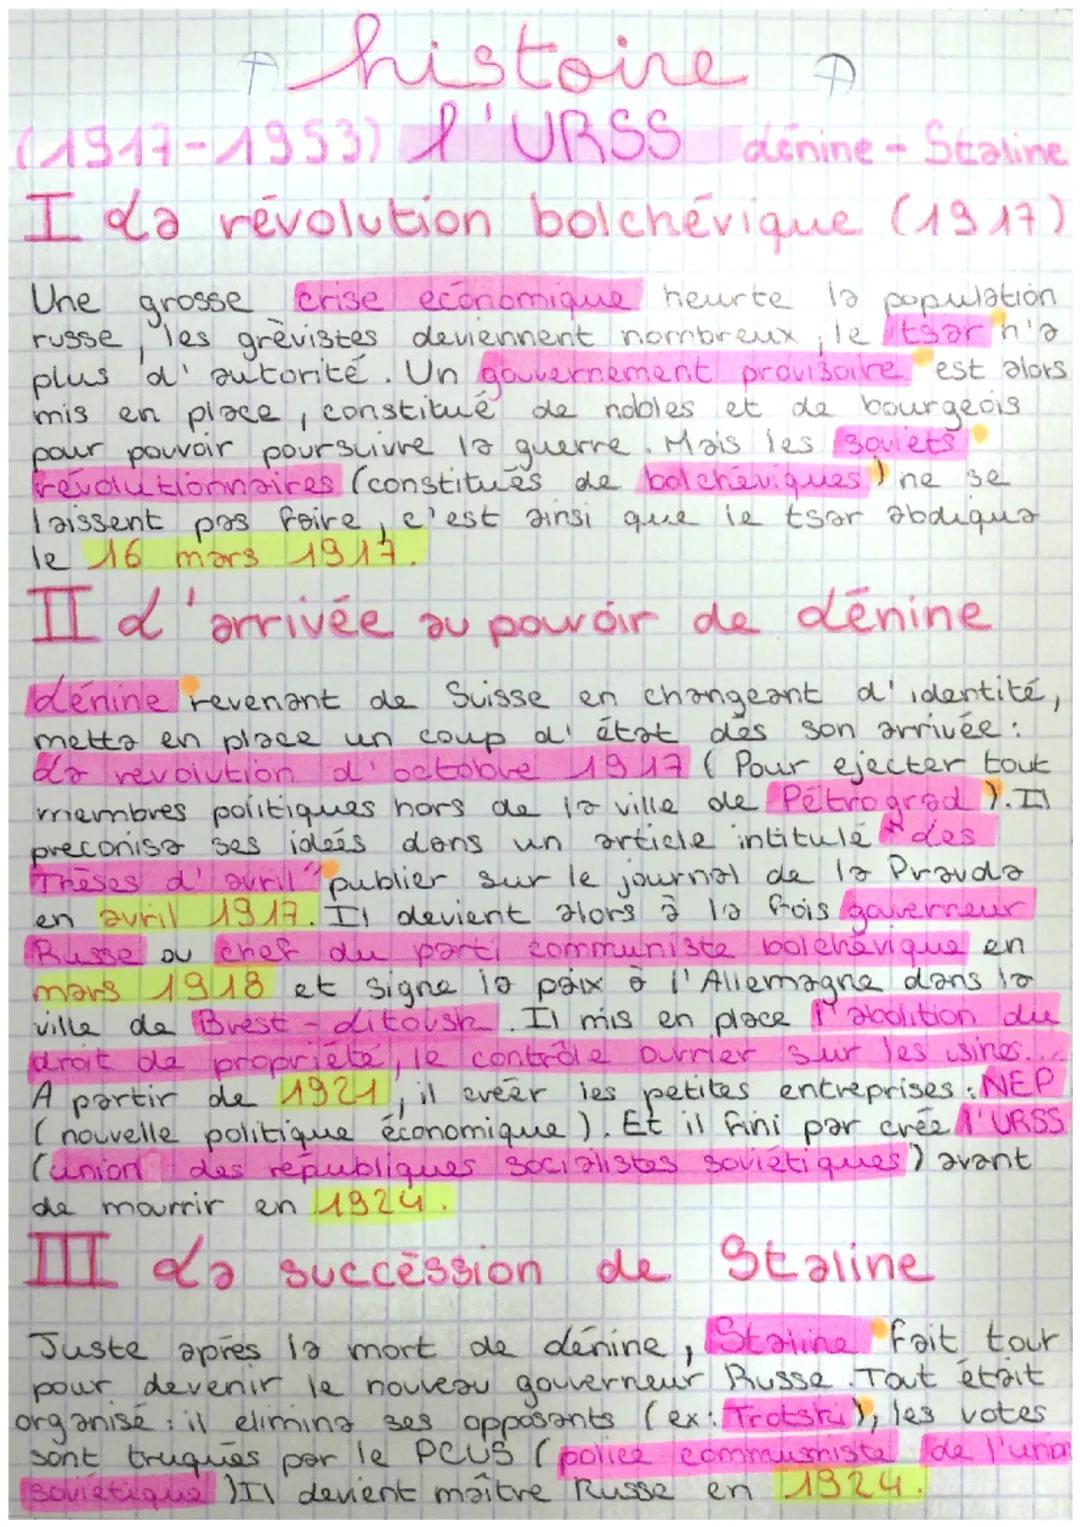 histoire
(1917-1953) l'URSS Lénine - Staline
I La révolution bolchévique (1917)
Une grosse crise économique heurte la population
russe, les grèvistes deviennent nombreux, le tsar n'a
plus d'autorité. Un gouvernement provisoire est alors
mis en place, constitué de nobles et de bourgeois
pour pouvoir poursuivre la guerre. Mais les soviets
révolutionnaires (constitués de bolchéviques) ne se
laissent pas faire, c'est ainsi que le tsar abdiqua
le 16 mars 1917.
II L'arrivée au pouvoir de Lénine
Lénine revenant de Suisse en changeant d'identité,
metta en place un coup d'état dès son arrivée :
La révolution d'octobre 1917 (Pour ejecter tout
membres politiques hors de la ville de Pétrograd). Il
preconisa ses ideés dans un article intitulé "des
Thèses d'avril" publier sur le journal de la Pravda
en avril 1917. Il devient alors à la fois gouverneur
Russe ou chef du parti communiste bolchévique en
mars 1918 et signe la paix à l'Allemagne dans la
ville de Brest-Litovsk. Il mis en place l'abolition du
droit de propriété, le contrôle ouvrier sur les usines...
A partir de 1921, il creér les petites entreprises : NEP
(nouvelle politique économique). Et il fini par crée l'URSS
(union des républiques socialistes soviétiques) avant
de mourrir en 1924.
III La succéssion de Staline
Juste après la mort de Lénine, Staline fait tout
pour devenir le nouveau gouverneur Russe. Tout était
organisé : il elimina ses opposants (ex: Trotski), les votes
sont truqués par le PCUS (police communiste de l'union
soviétique) Il devient maître Russe en 1924.